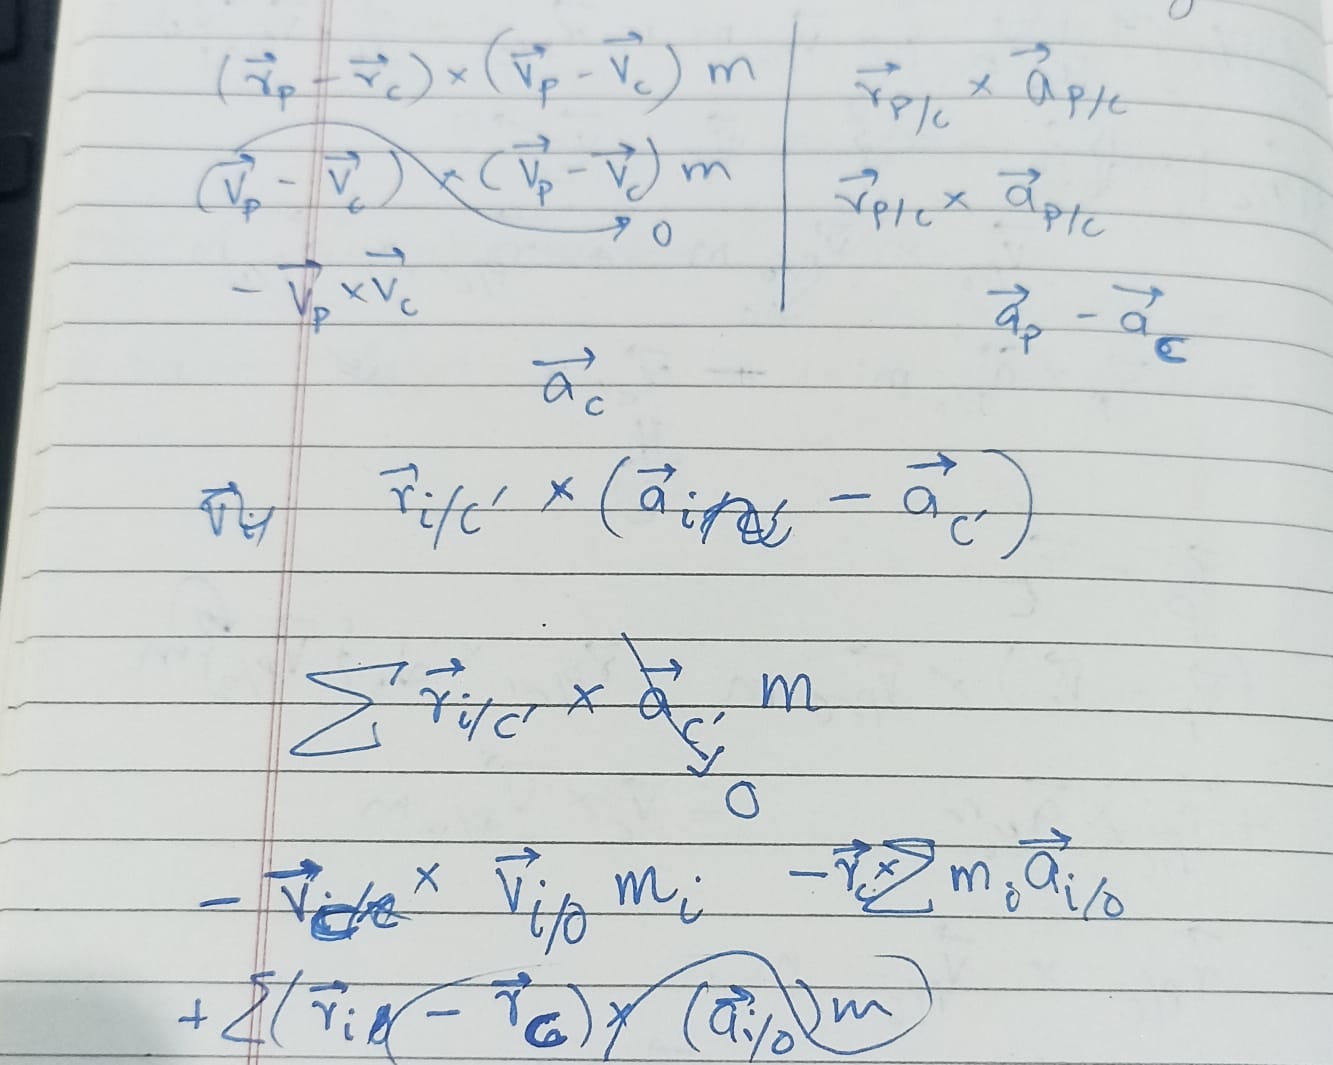 (r⃗_p - r⃗_c) × (v⃗_p - v⃗_c) m
(v⃗_p - v⃗_c) × (v⃗_p - v⃗_c) m
0
- v⃗_p × v⃗_c
r⃗_{P/c} × a⃗_{P/c}
r⃗_{P/c} × a⃗_{P/c}
a⃗_p - a⃗_c
a⃗_c
r⃗_{i/c'} × (a⃗_i - a⃗_{c'})
Σ r⃗_{i/c'} × a⃗_{c'} m
0
- v⃗_c × v⃗_{i/0} m_i - r⃗_c × Σ m_i a⃗_{i/0}
+ Σ (r⃗_i - r⃗_G) × (a⃗_{i/0}) m